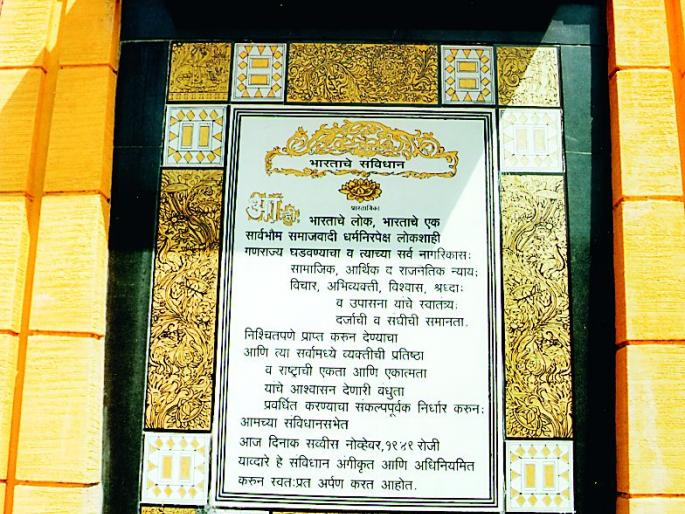 भारताचे संविधान
प्रास्ताविका
आम्ही भारताचे लोक, भारताचे एक
सार्वभौम समाजवादी धर्मनिरपेक्ष लोकशाही
गणराज्य घडवण्याचा व त्याच्या सर्व नागरिकास:
सामाजिक, आर्थिक द राजनैतिक न्याय:
विचार, अभिव्यक्ती, विश्वास, श्रध्दा:
व उपासना याचे स्वातंत्र्य:
दर्जाची व संधीची समानता.
निश्चितपणे प्राप्त करुन देण्याचा
आणि त्या सर्वामध्ये व्यक्तीची प्रतिष्ठा
व राष्ट्राची एकता आणि एकात्मता
यांचे आश्वासन देणारी बधुता
प्रवर्धित करण्याचा सकल्पपूर्वक निर्धार करुन:
आमच्या संविधानसभेत
आज दिनाक सव्वीस नोव्हेंबर,१९४९ रोजी
याव्दारे हे संविधान अंगीकृत आणि अधिनियमित
करुन स्वत:प्रत अर्पण करत आहोत.